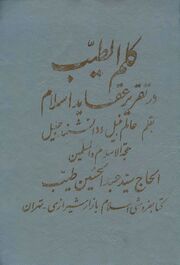 کلم الطیب
در تقریر عقاید اسلام
بقلم عالم نبیل و دانشمند جلیل
حجة الاسلام والمسلمین
الحاج سید عبدالحسین طیب
کتابفروشی اسلام بازار شیرازی - تهران